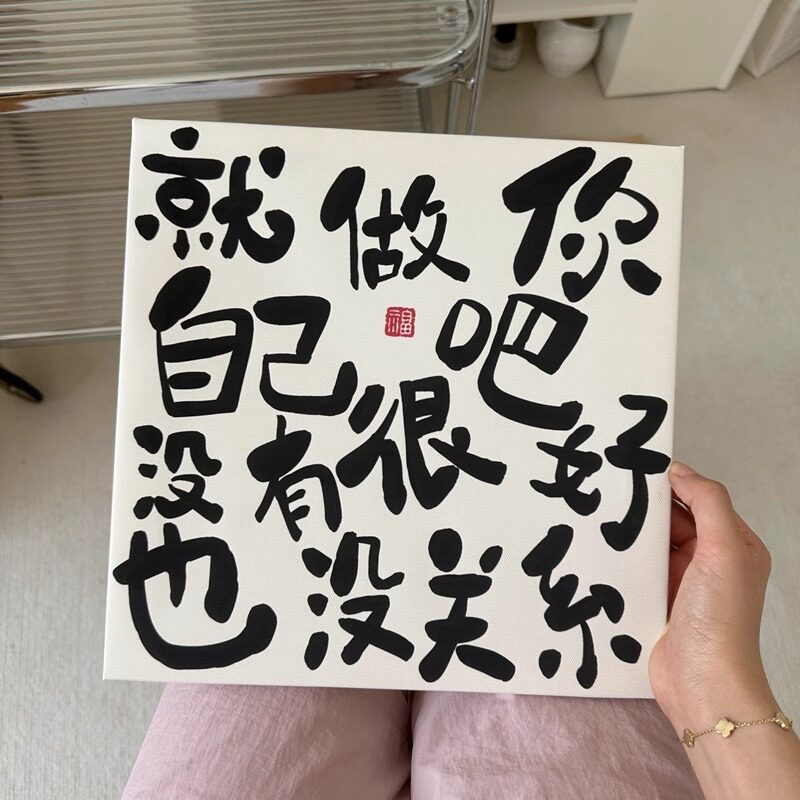 就做你
自己吧
没有很好
也没关系
福